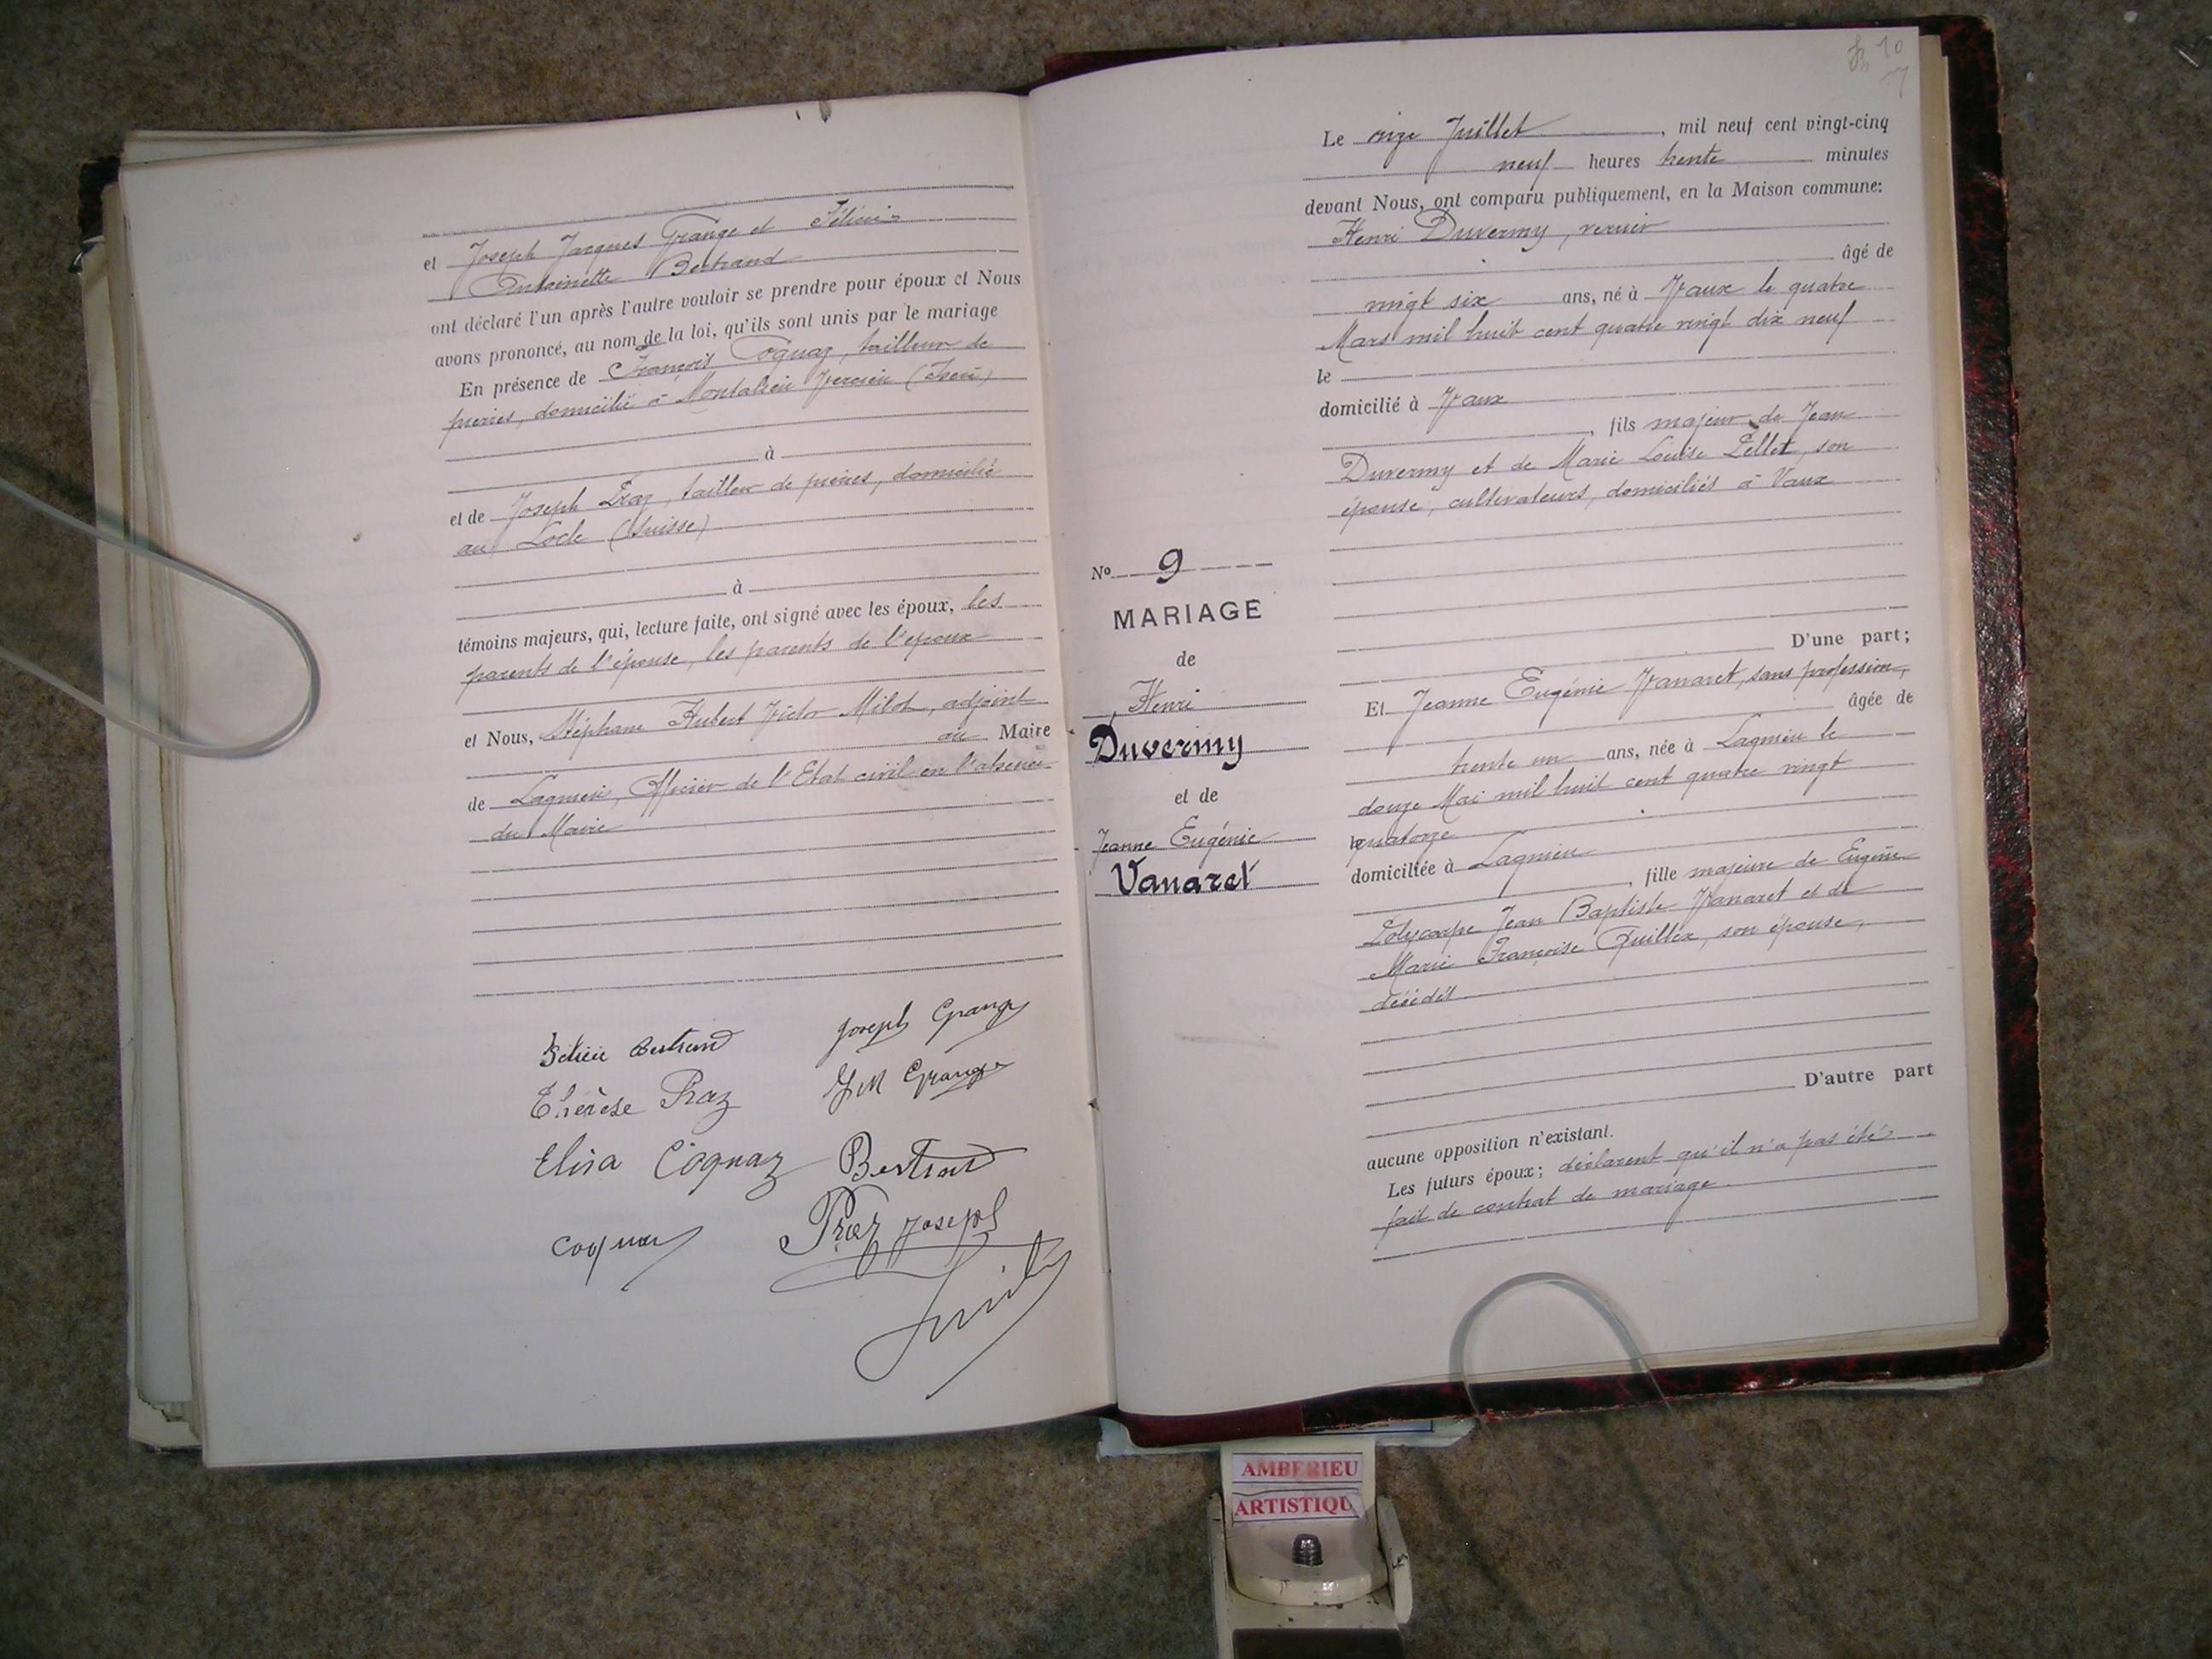 et Joseph Jacques Grange et Félicie
Antoinette Bertrand
ont déclaré l'un après l'autre vouloir se prendre pour époux et Nous
avons prononcé, au nom de la loi, qu'ils sont unis par le mariage
En présence de François Cognaz, tailleur de
pierres, domicilié à Montalieu Vercieu (Isère)
à
et de Joseph Praz, tailleur de pierres, domicilié
au Locle (Suisse)
à
témoins majeurs, qui, lecture faite, ont signé avec les époux, les
parents de l'épouse, les parents de l'époux
et Nous, Stéphane Hubert Victor Milot, adjoint
au Maire
de Lagnieu, Officier de l'Etat civil en l'absence
du Maire
Félicie Bertrand Joseph Grange
Thérèse Praz JM Grange
Elisa Cognaz Bertrand
Cognaz Praz Joseph
10
Le onze Juillet, mil neuf cent vingt-cinq
neuf heures trente minutes
devant Nous, ont comparu publiquement, en la Maison commune:
Henri Duvermy, verrier
âgé de
vingt six ans, né à Vaux le quatre
Mars mil huit cent quatre vingt dix neuf
le
domicilié à Vaux
, fils majeur de Jean
Duvermy et de Marie Louise Pellet, son
épouse, cultivateurs, domiciliés à Vaux
D'une part;
Et Jeanne Eugénie Vanaret, sans profession,
âgée de
trente un ans, née à Lagnieu le
douze Mai mil huit cent quatre vingt
quatorze
domiciliée à Lagnieu
, fille majeure de Eugène
Polycarpe Jean Baptiste Vanaret et de
Marie Françoise Quillex, son épouse,
décédés
D'autre part
aucune opposition n'existant.
Les futurs époux; déclarent qu'il n'a pas été
fait de contrat de mariage.
No 9
MARIAGE
de
Henri
Duvermy
et de
Jeanne Eugénie
Vanaret
AMBERIEU
ARTISTIQU